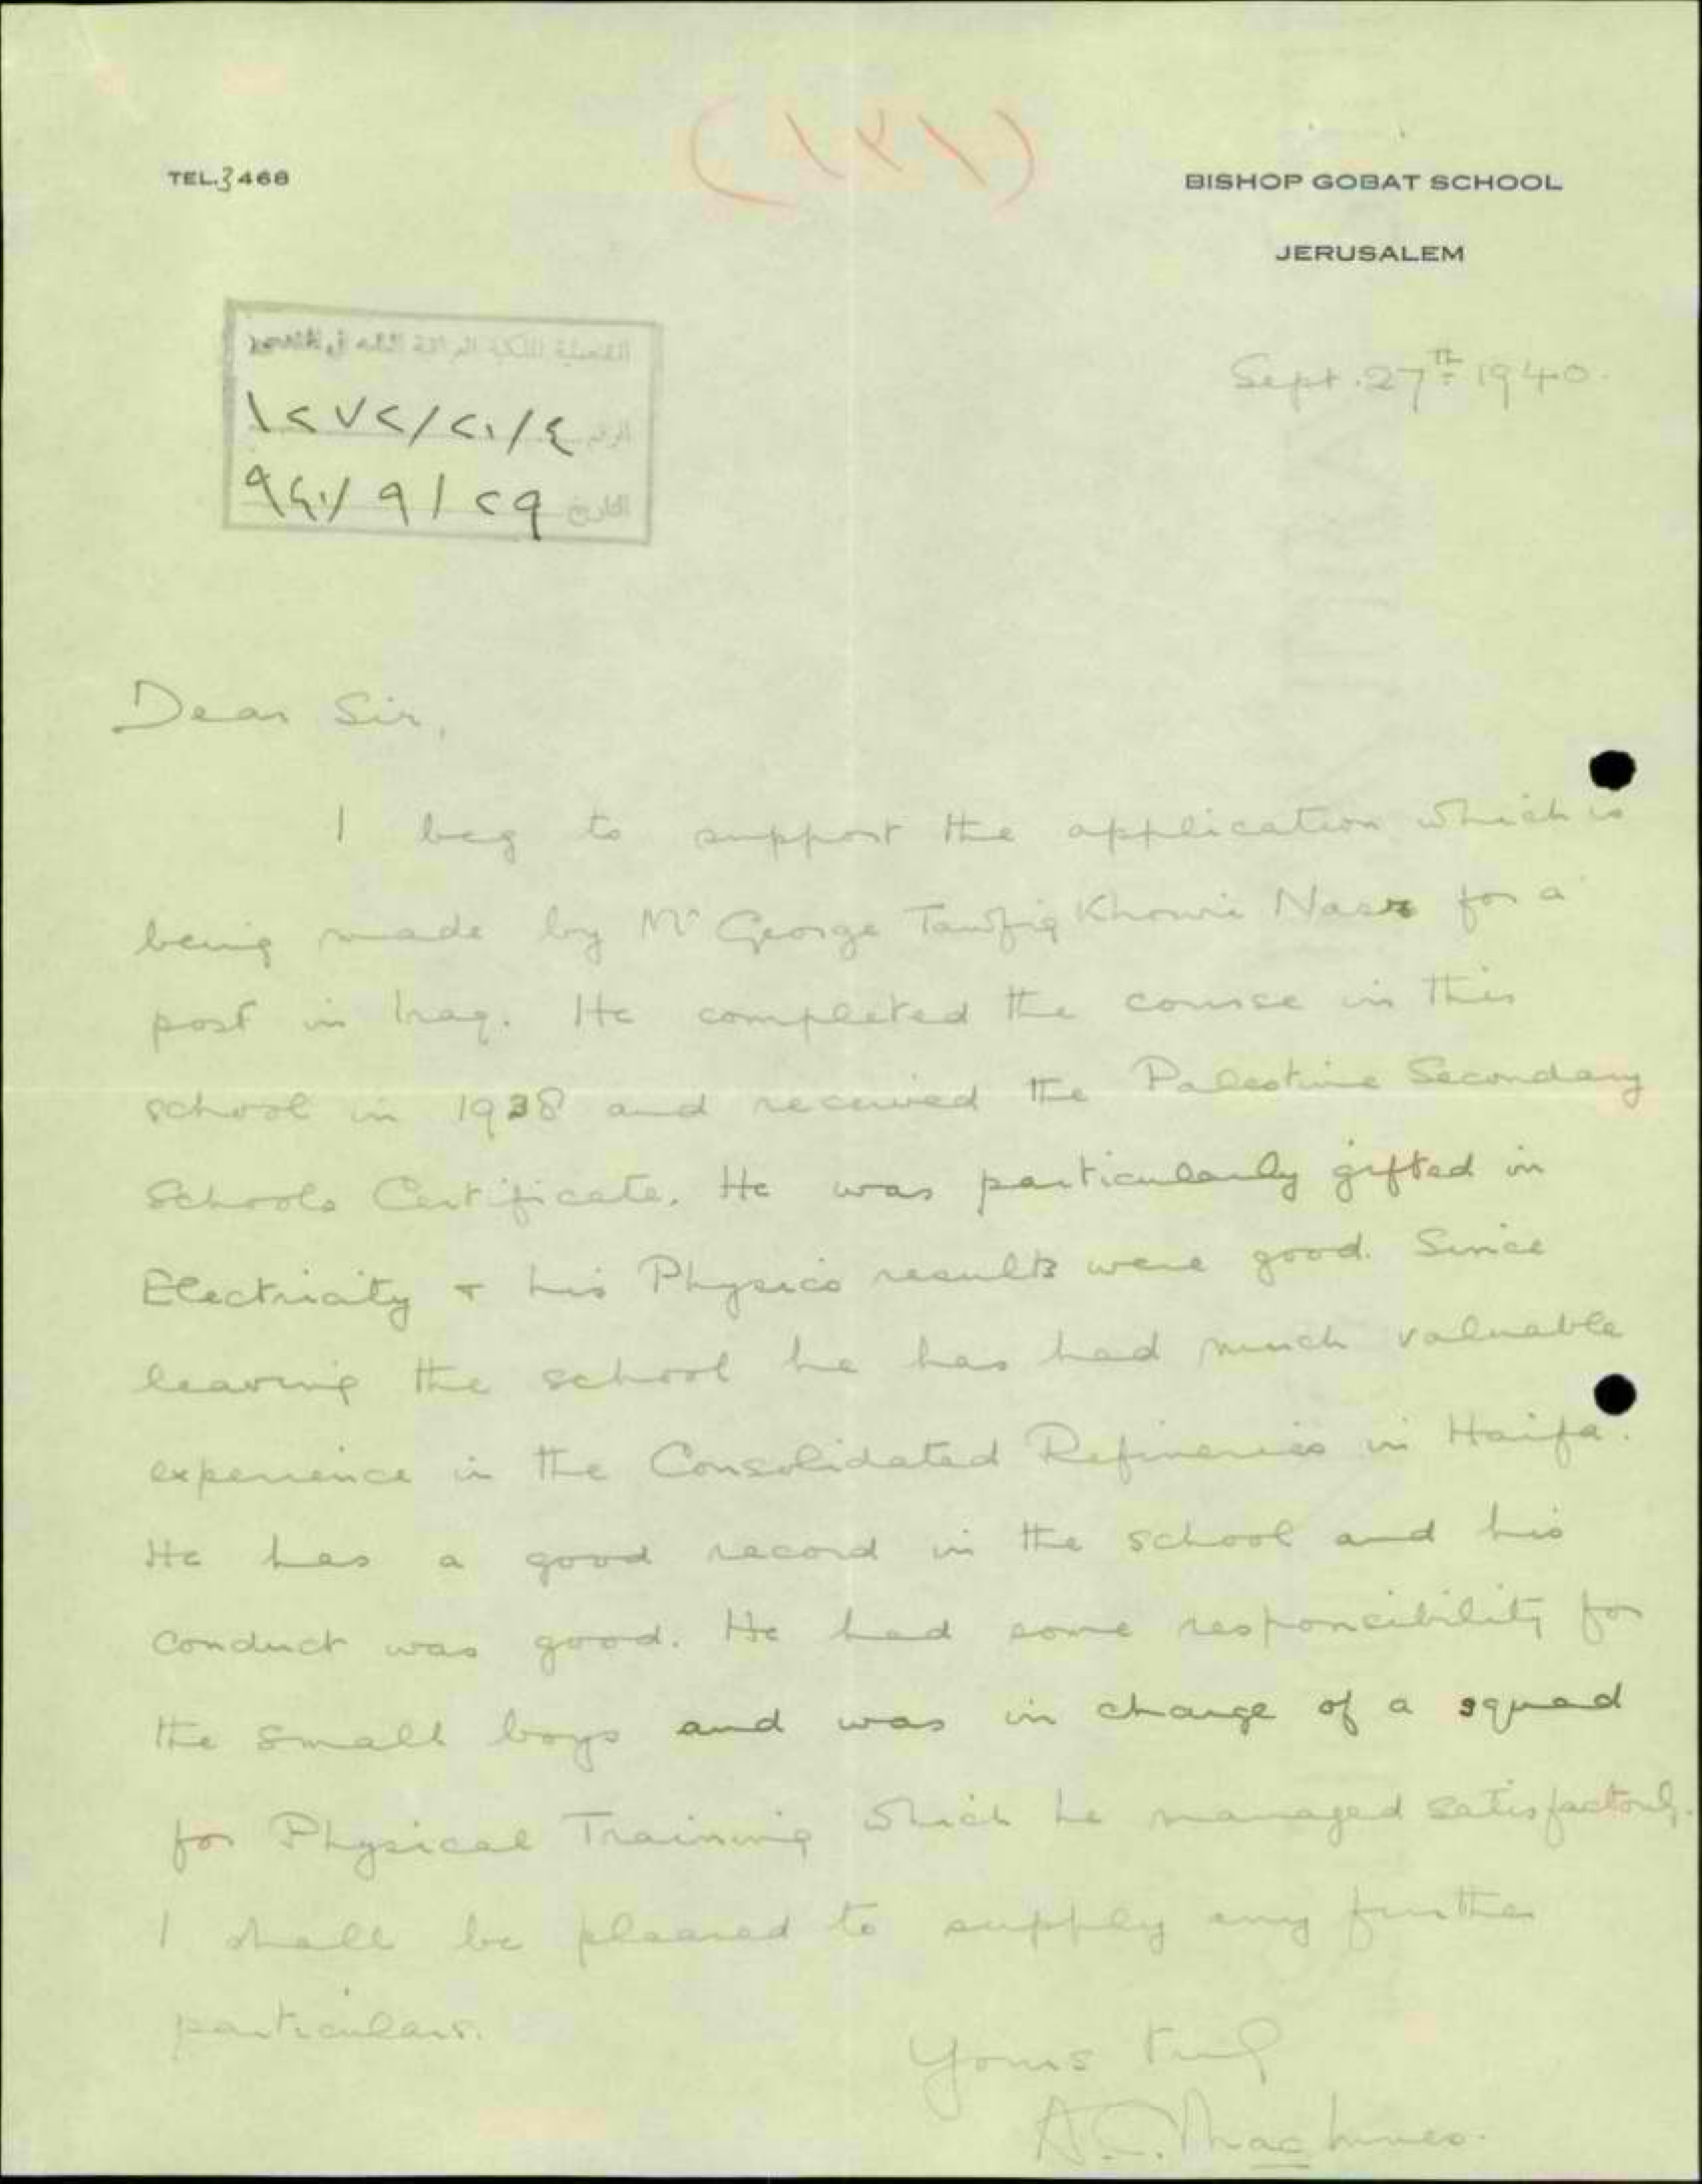 (١٢١)
TEL. 3468
BISHOP GOBAT SCHOOL
JERUSALEM
القنصلية الملكية العراقية في القدس
الرقم ١٢٧٢/٢١/٤
التاريخ ٢٩/٩/٩٤٠
Sept. 27th 1940.
Dear Sir,
I beg to support the application which is
being made by Mr George Tawfiq Khouri Nasr for a
post in Iraq. He completed the course in this
school in 1938 and received the Palestine Secondary
Schools Certificate. He was particularly gifted in
Electricity + his Physics results were good. Since
leaving the school he has had much valuable
experience in the Consolidated Refineries in Haifa.
He has a good record in the school and his
conduct was good. He had some responsibility for
the small boys and was in charge of a squad
for Physical Training which he managed satisfactorily.
I shall be pleased to supply any further
particulars.
Yours truly
A.C. MacInnes.